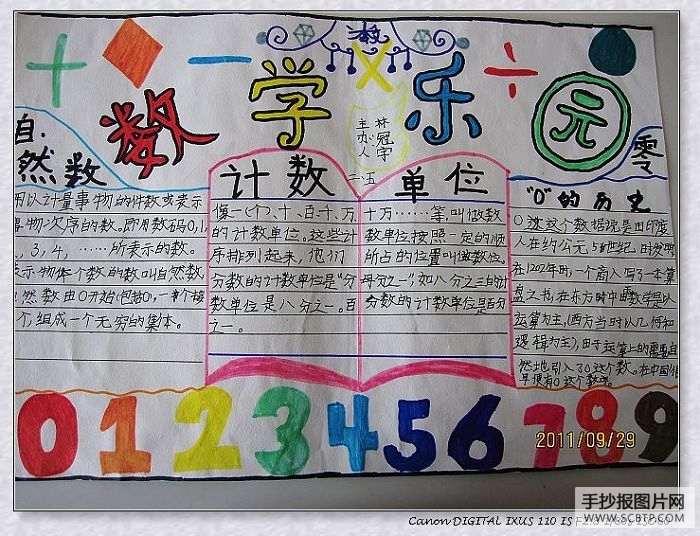 + - × ÷
数
数学乐元
主办人
林冠宇
二.五
自.
然数
用以计量事物的件数或表示
事物次序的数。即用数码0,1,
,3,4,……所表示的数。
表示物体个数的数叫自然数,
自然数由0开始(包括0),一个接
个,组成一个无穷的集体。
计数单位
像一(个)、十、百、千、万、
十万……等,叫做数
的计数单位。这些计
数单位按照一定的顺
序排列起来,他们
所占的位置叫做数位。
分数的计数单位是“分
母分之一”,如八分之三的计
数单位是八分之一。百
分数的计数单位是百分
之一。
零
"0"的历史
0这这个数据说是由印度
人在约公元5世纪时发明,
在1202年时,一个商人写了一本算
盘之书,在东方时中由数学是以
运算为主,(西方当时以几何和
逻辑为主),由于运算上的需要自
然地引入了0这个数。在中国很
早便有0这个数字。
0 1 2 3 4 5 6 7 8 9
2011/09/29
手抄报图片网
WWW.SCBTP.COM
Canon DIGITAL IXUS 110 IS